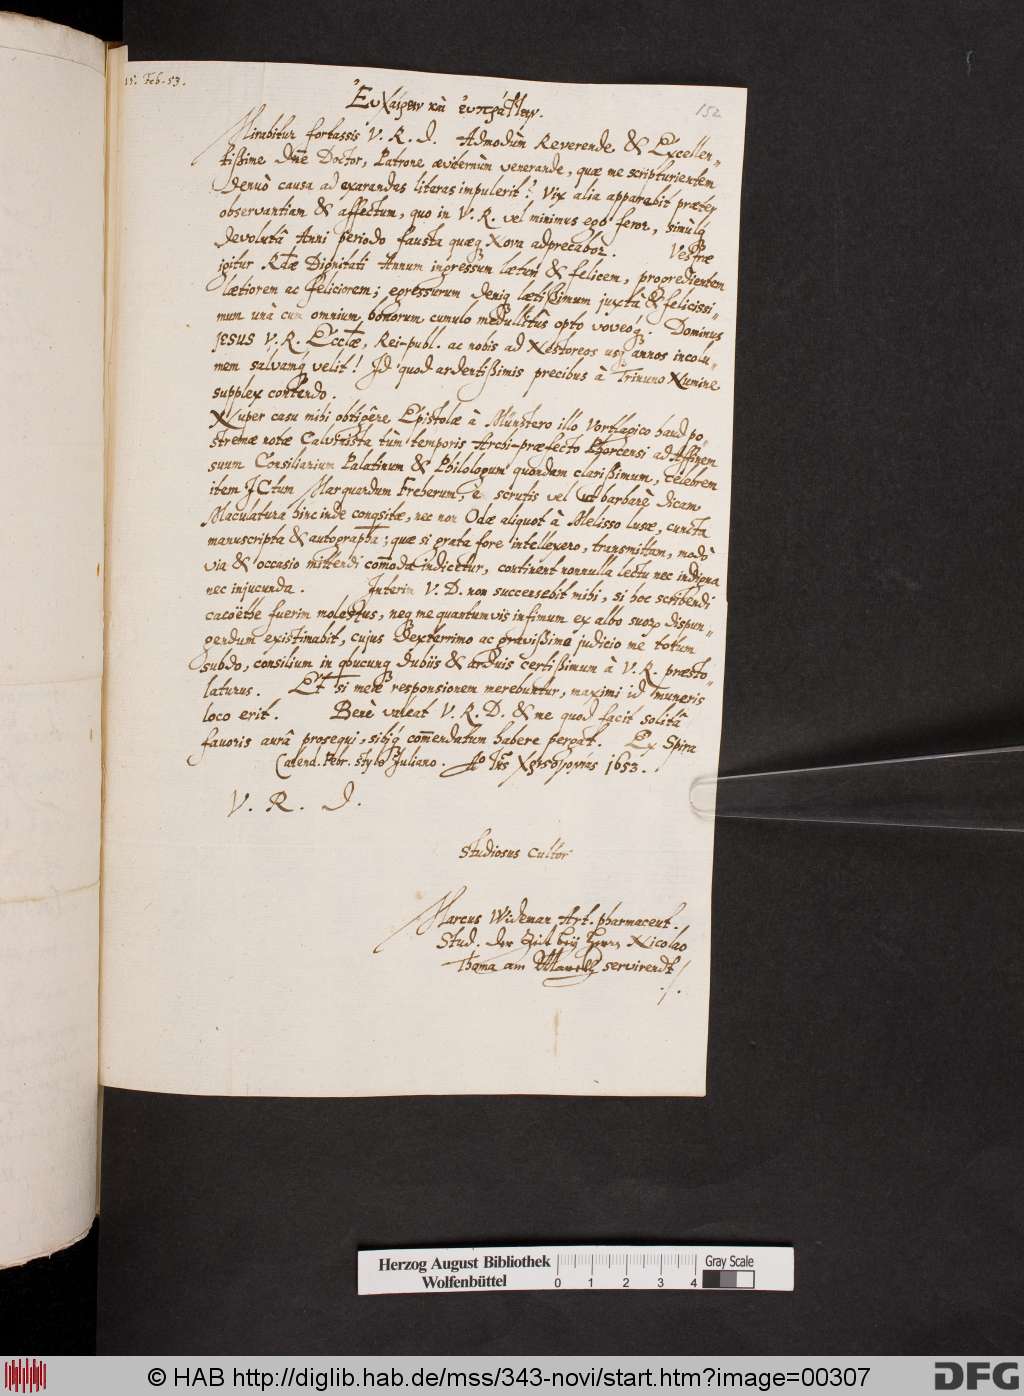 15. Feb. 53.
152
Ἐυχαίρειν καὶ ἐυπράττειν.
Mirabitur fortassis V. R. D. Admodùm Reverende & Excellen-
tißime Dñe Doctor, Patrone æviternùm venerande, quæ me scripturientem
denuò causa ad exarandas literas impulerit? Vix alia apparebit præter
observantiam & affectum, quo in V. R. vel minimus ego feror, simulq
devolutâ Anni periodo fausta quæq Nova adprecabor. Vestræ
igitur Rdæ Dignitati Annum ingressum lætum & felicem, progredientem
lætiorem ac feliciorem; egressurum deniq lætißimum juxtà & felicissi-
mum unà cum omnium bonorum cumulo medullitùs opto voveóq. Dominus
JESUS V. R. Eccłæ, Rei-publ. ac nobis ad Nestoreos usq annos incolu-
mem salvamq velit! Id quod ardentißimis precibus à Trinuno Numine
supplex contendo.
Nuper casu mihi obtigêre Epistolæ à Münstero illo Vortlagico haud po-
stremæ notæ Calvinista tùm temporis Archi-præfecto ad Affinem
suum Consiliarium Palatinum & Philologum quondam clarißimum, celebrem
item JCtum Marquardum Freherum, è scrutis vel ut barbarè dicam
Maculatura hinc inde conqsitæ, nec non Odæ aliquot à Melisso lusæ, cuncta
manuscripta & autographa; quæ si grata fore intellexero, transmittam, modò
via & occasio mittendi com̃oda indicetur, continent nonnulla lectu nec indigna
nec injucunda. Interim V. D. non succensebit mihi, si hoc scribendi
cacoëthe fuerim molestus, neq me quantumvis infimum ex albo suor dispun-
gendum existimabit, cujus dexterrimo ac gravißimo judicio me totum
subdo, consilium in qbuscunq dubiis & arduis certißimum à V. R. præsto-
laturus. Et si meæ responsionem merebuntur, maximi id muneris
loco erit. Benè valeat V. R. D. & me quod facit solitâ
favoris aurâ prosequi, sibiq com̃endatum habere pergat. Ex Spira
Calend. Febr. stylo Juliano. Ao 1653.
V. R. D.
Studiosus cultor
Marcus Wideman Art. pharmaceut.
Stud. der Zeit beÿ Herrn Nicolao
Thoma am servirendt
Herzog August Bibliothek
Wolfenbüttel
0 1 2 3 4
Gray Scale
© HAB http://diglib.hab.de/mss/343-novi/start.htm?image=00307
DFG